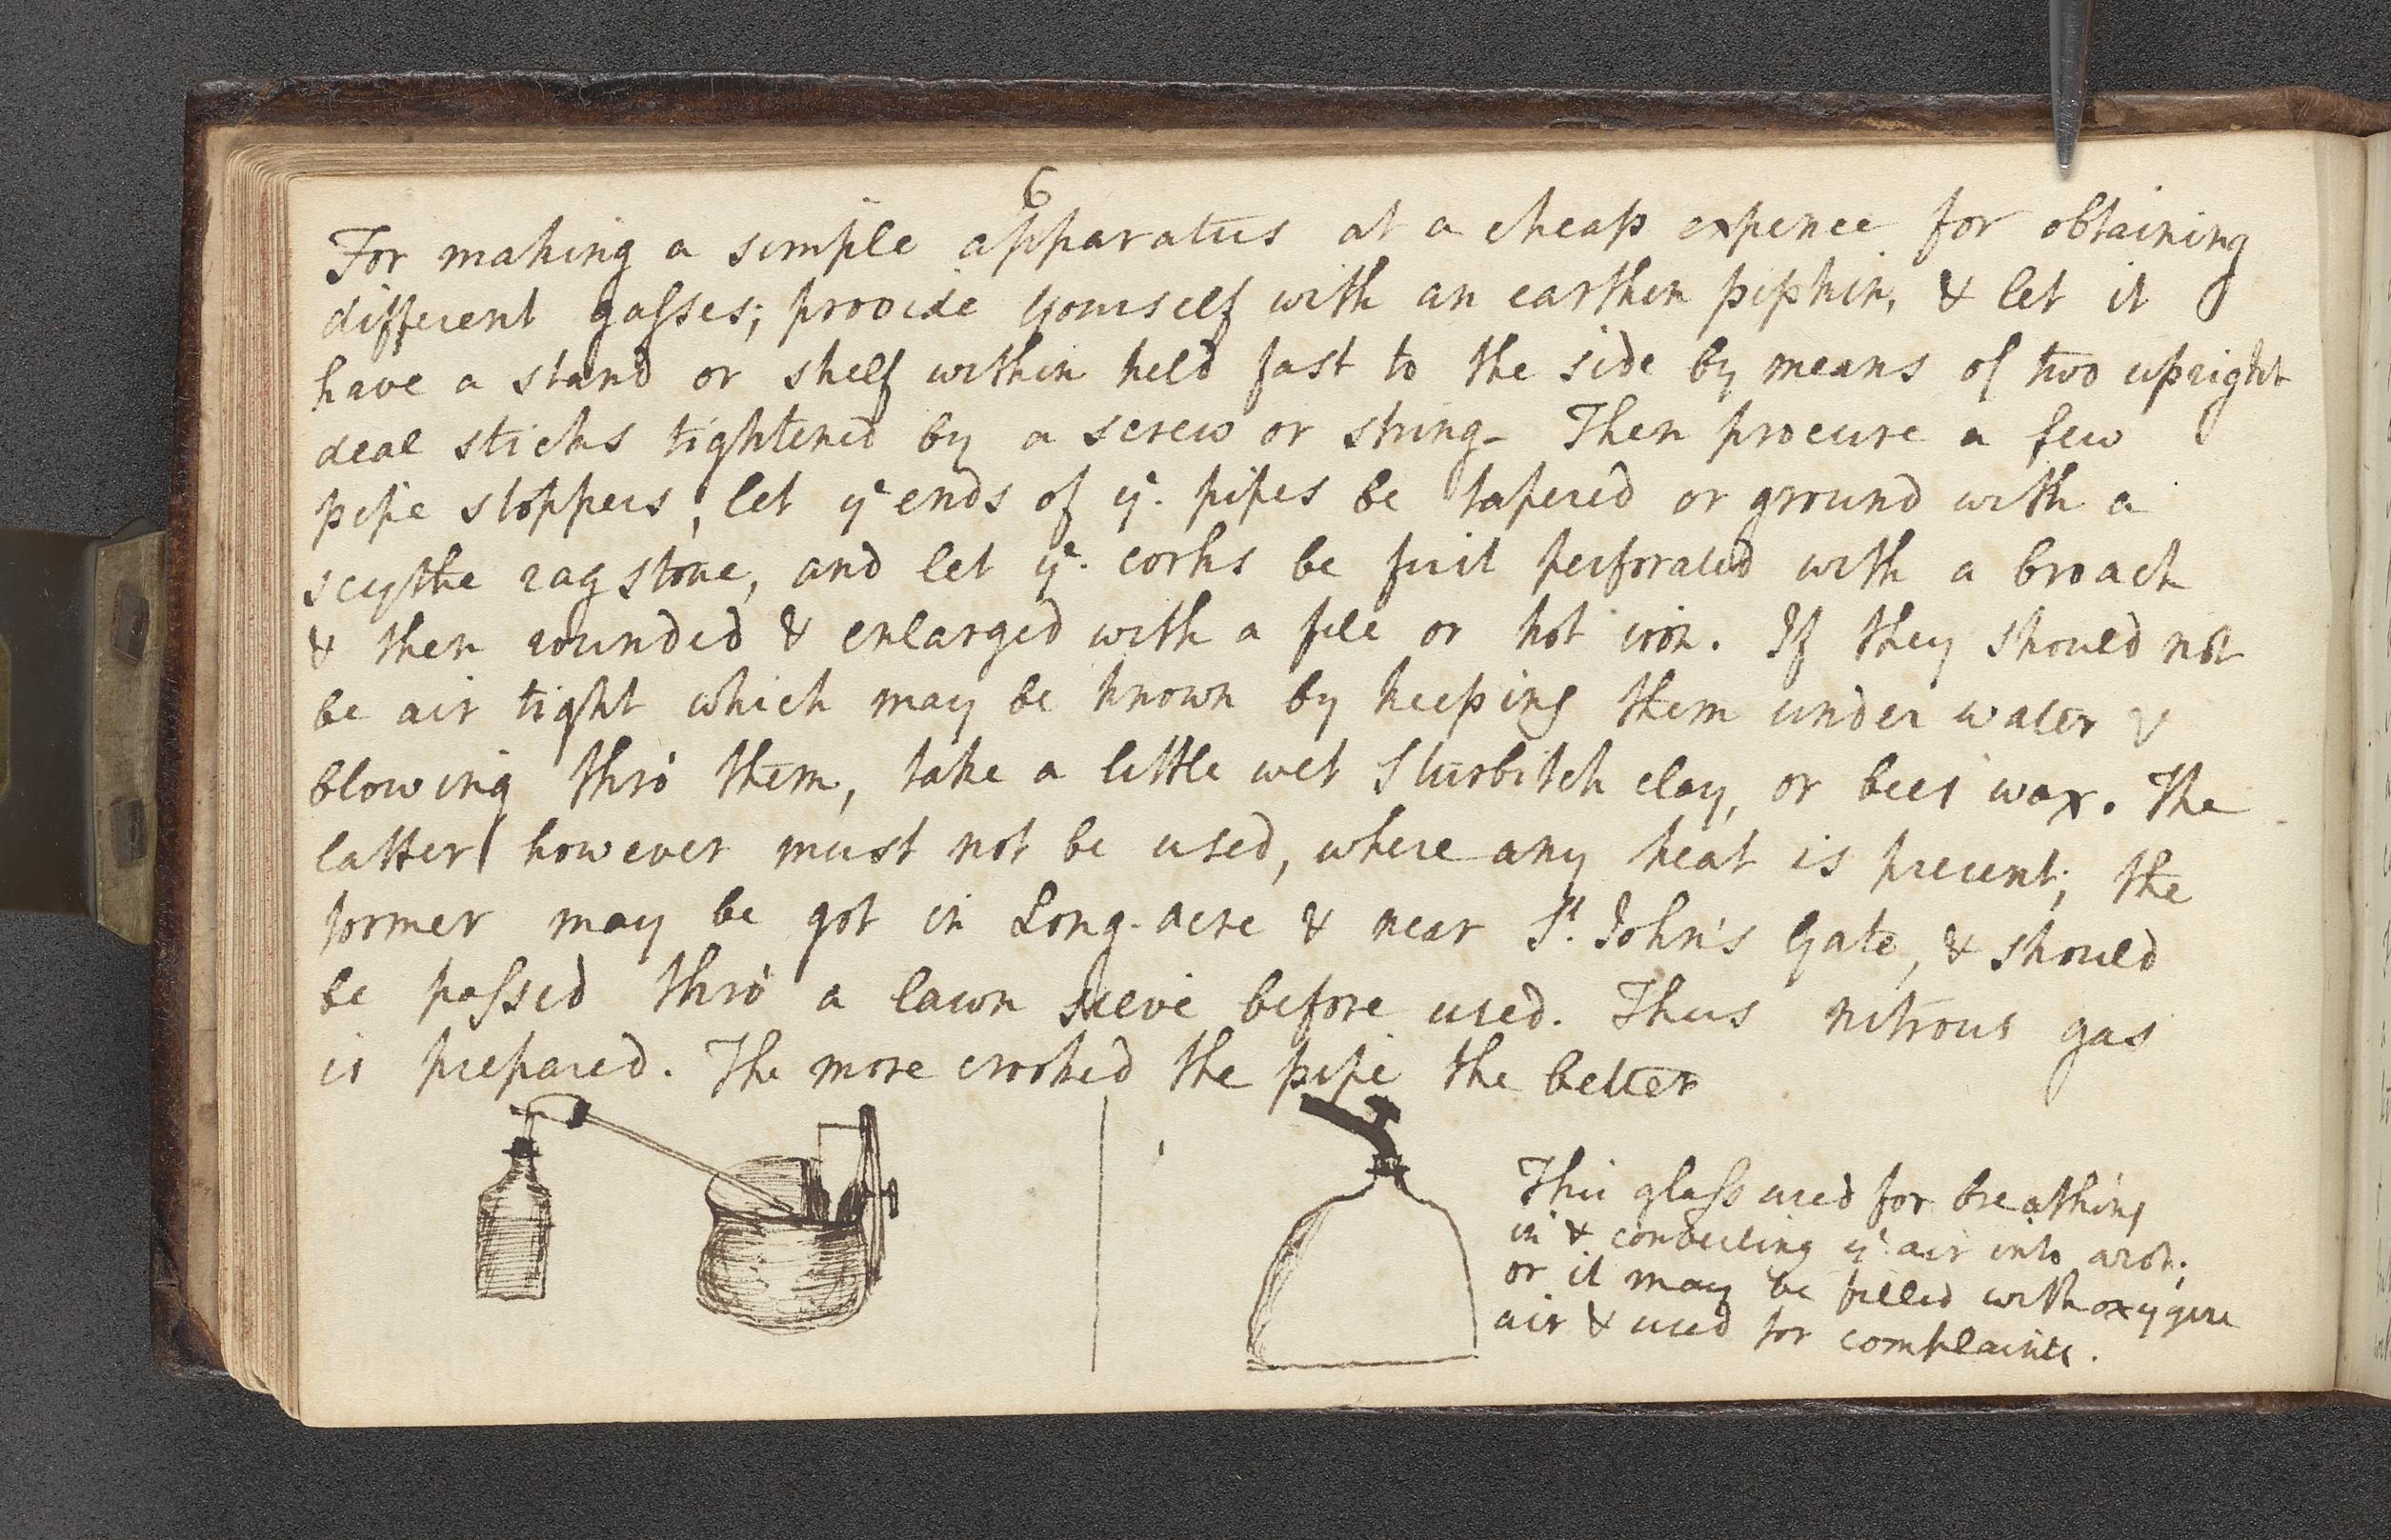 6
For making a simple apparatus at a cheap expence for obtaining
different gasses; provide yourself with an earthen pipkin, & let it
have a stand or shelf within held fast to the side by means of two upright
deal sticks tightened by a screw or string - Then procure a few
pipe stoppers, let ye ends of ye. pipes be tapered or ground with a
scythe rag stone, and let ye. corks be first perforated with a broach
& then rounded & enlarged with a file or hot iron. If they should not
be air tight which may be known by keeping them under water &
blowing thro' them, take a little wet Sturbitch clay, or bees wax. The
latter however must not be used, where any heat is present; the
former may be got in Long-acre & near St. John's Gate, & should
be passed thro' a lawn sieve before used. Thus nitrous gas
is prepared. The more crooked the pipe the better
This glass used for breathing
in & converting ye. air into azot;
or it may be filled with oxygene
air & used for complaints.